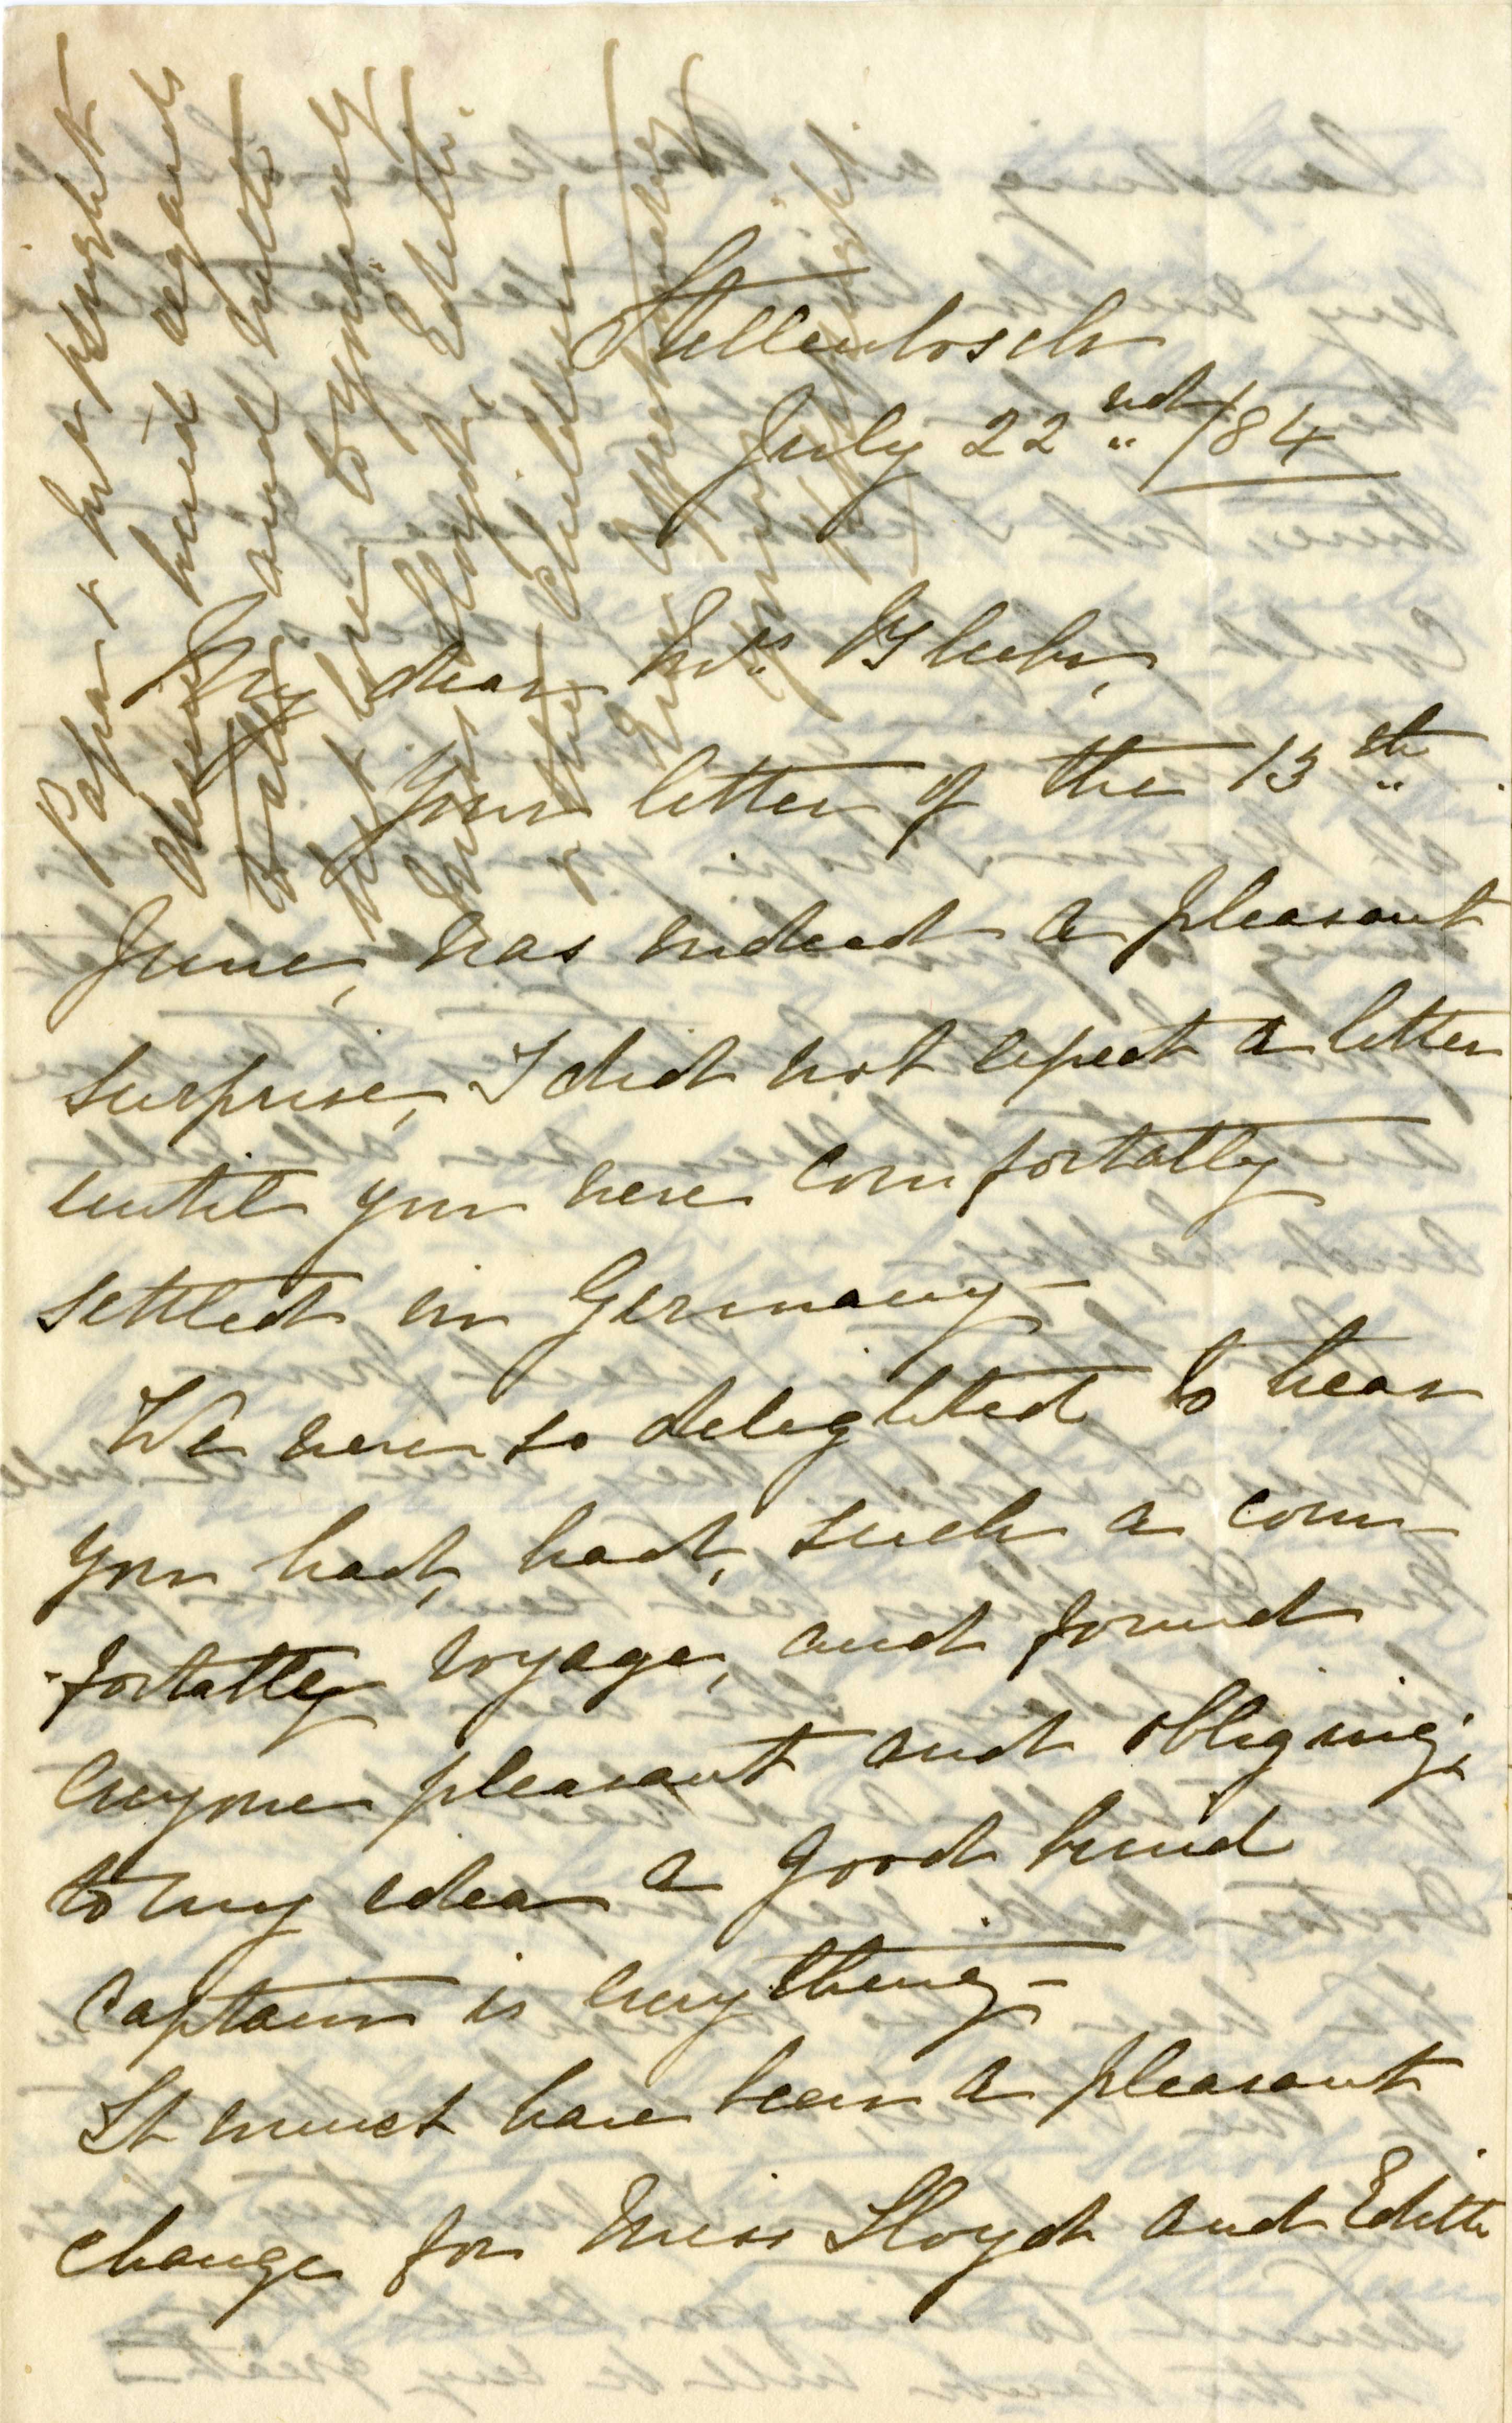 Stellenbosch
July 22nd /84
My dear Mrs Bleek,
Your letter of the 13th
June, was indeed a pleasant
surprise, I did not expect a letter
until you were comfortably
settled in Germany –
We were so delighted to hear
you had, had, such a com
-fortably voyage, and found
everyone pleasant and obliging,
to my idea a good kind
captain is everything –
It must have been a pleasant
change for Miss Lloyd and Edith
Papa &
desire kind regards
and
love to yourself
Miss Lloyd, Edith
& the children
Ever